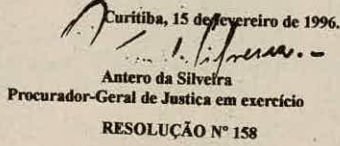 Curitiba, 15 de fevereiro de 1996.
Antero da Silveira
Procurador-Geral de Justica em exercício
RESOLUÇÃO Nº 158